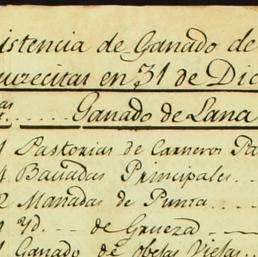 istencia de Ganado de
uzecitas en 31 de Dic
as Ganado de Lana
Pastorias de Carneros Pa
4 Bauadas Principales
2 Manadas de Punta
Yd. de Grueza
Ganado de obejas Viejas